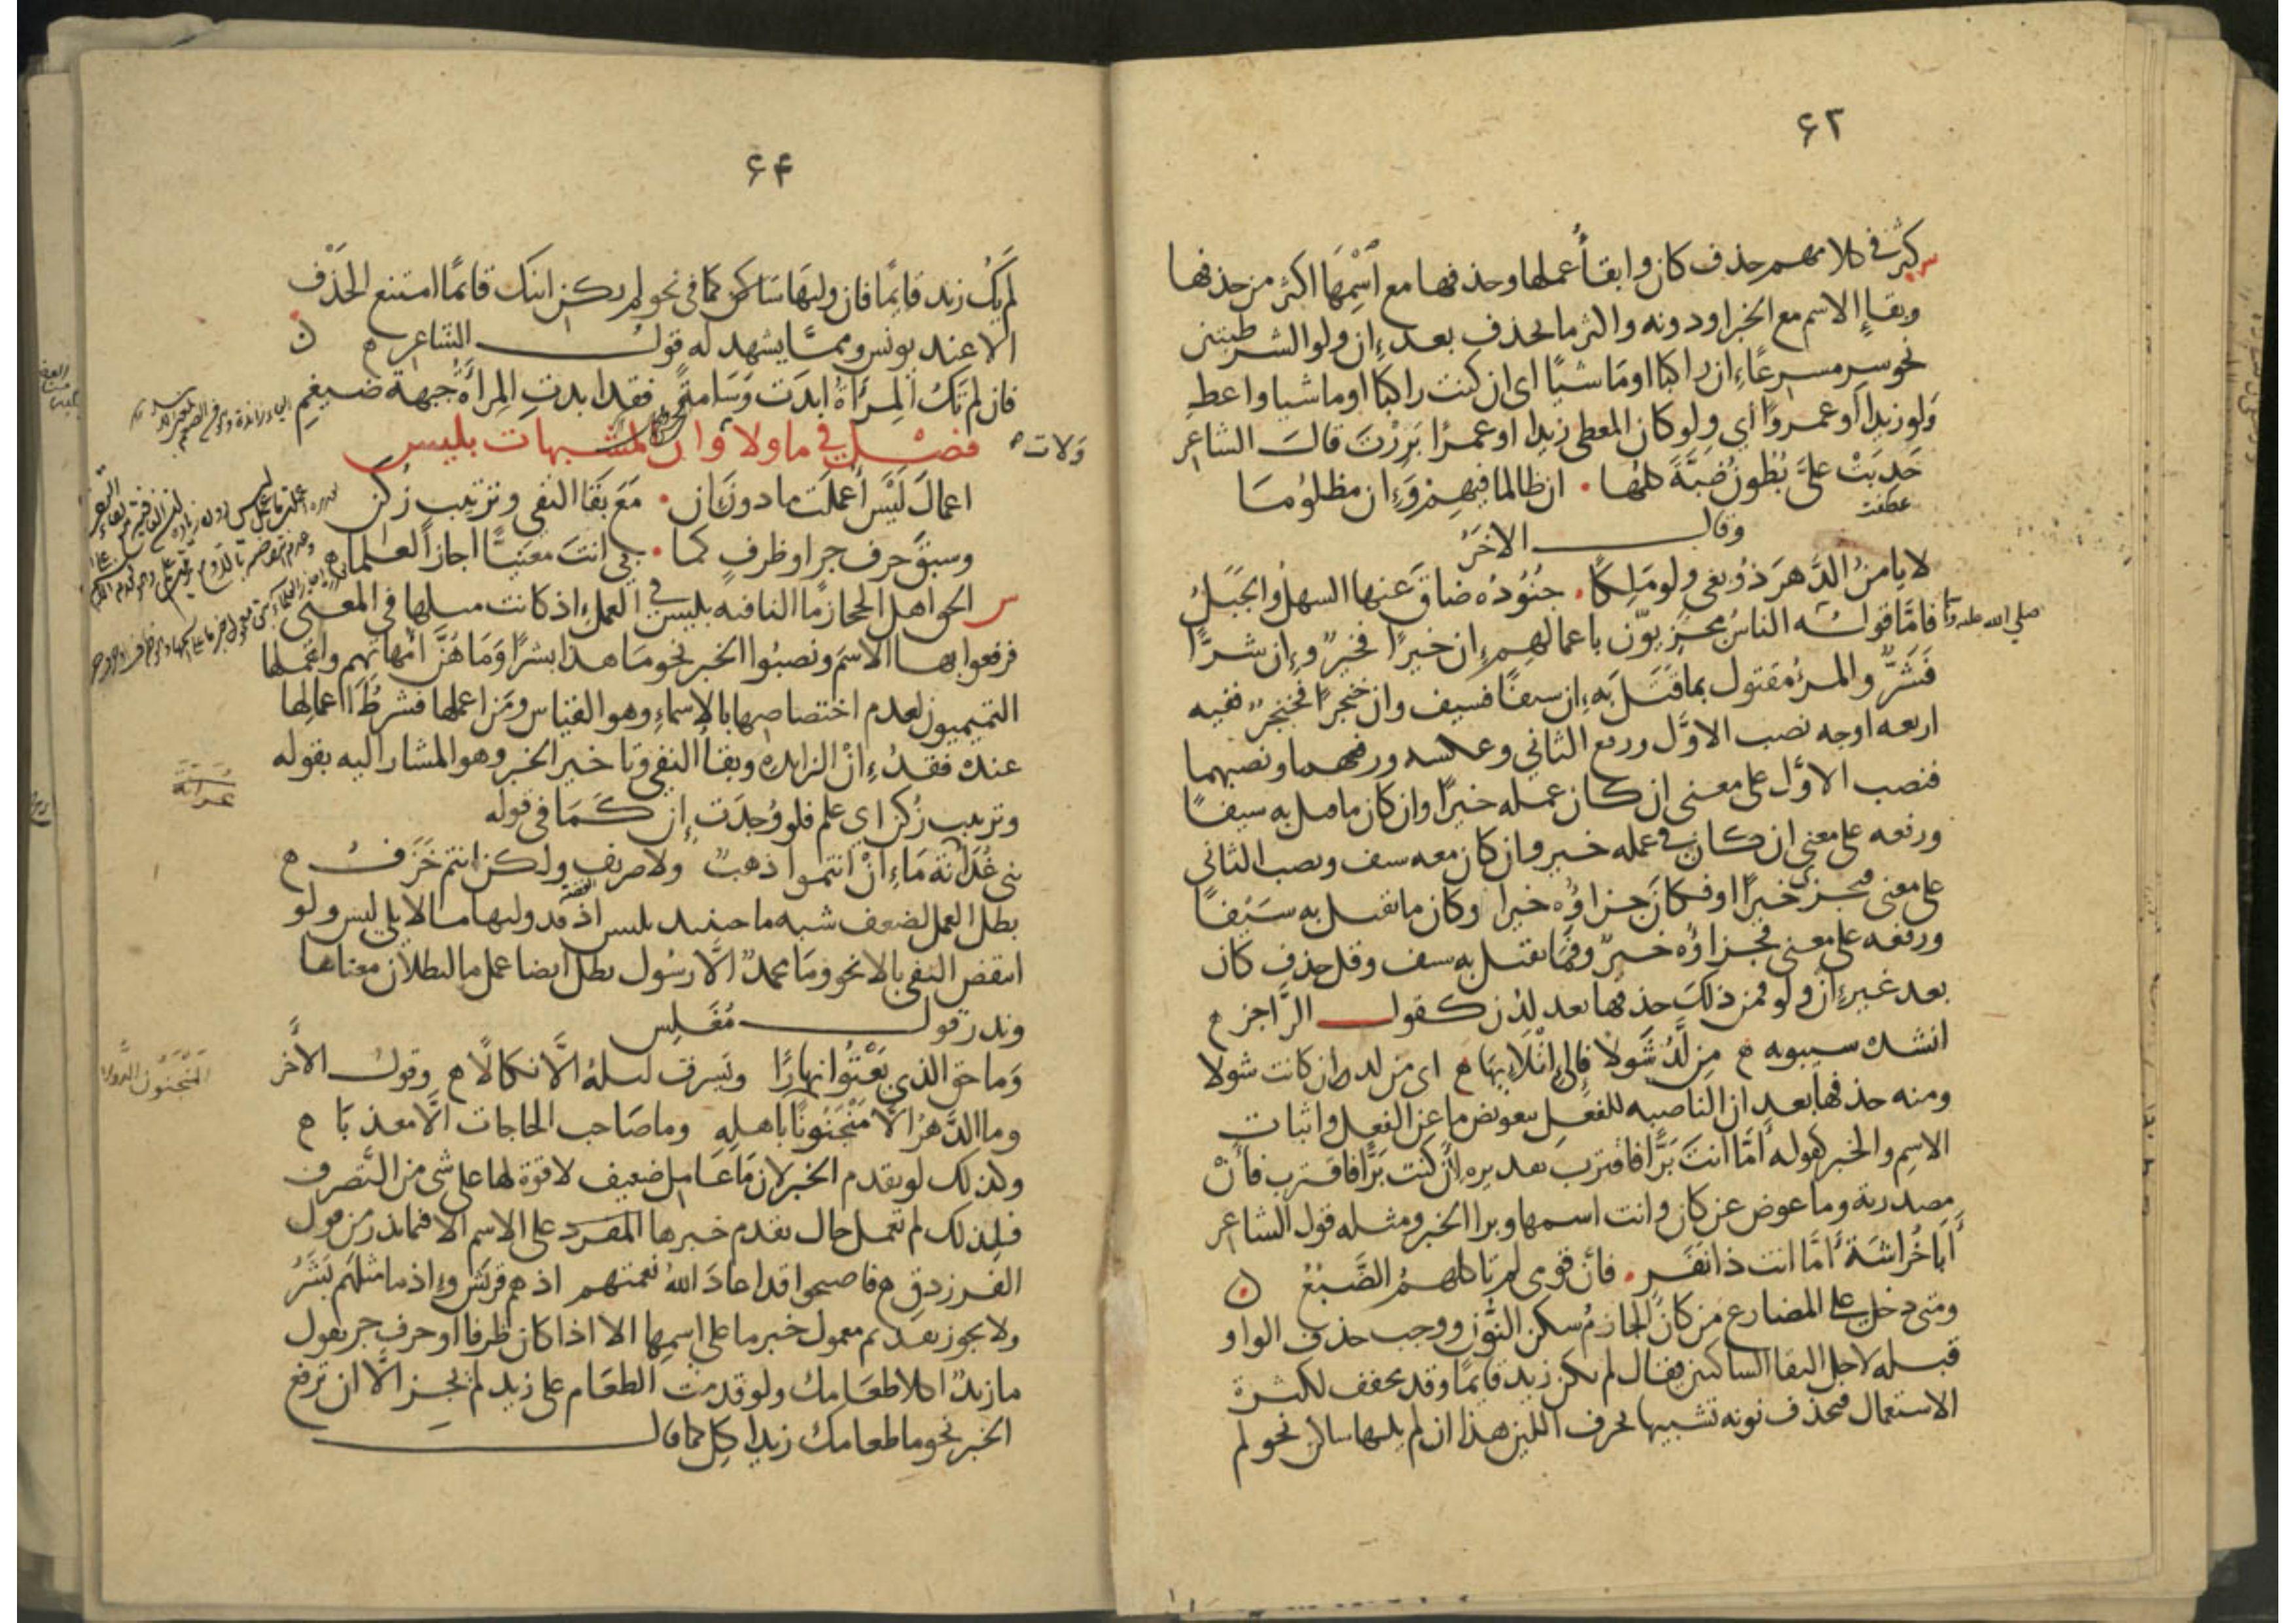 ٦٣
س كثر في كلامهم حذف كان وابقاء عملها وحذفها مع اسْمِهَا اكثر من حذفها
وبقاءِ الاسم مع الخبر او دونه واكثر ما تحذف بعد إن ولو الشرطيتين
نحو سر مسرعًا إن راكبًا او مَاشيًا اي ان كنت راكبًا او ماشيا واعطِ
وَلو زيدا او عمروًا اي ولو كان المعطى زيدا او عمرًا بَرِرْتَ قالَ الشاعر
حَدِبَتْ علىَّ بُطُونُ ضَبَّةَ كلُّها . ان ظالما فيهم وَإن مظلوُمَا
عطفت
وقال الاخَرُ
لا يامنُ الدَّهرَ ذُو بغي ولو مَلِكًا . جُنُوُدُه ضاقَ عنها السهلُ والجَبَلُ
فامَّا قولُه الناسُ مجزيّون باعمالهم إن خيرًا فخيرٌ وإن شرًّا
صلي الله عليه
فَشَرٌّ والمرءُ مقتول بما قَتَلَ به إن سيفًا فسيف وان خنجرًا فخنجرٌ ففيه
اربعه اوجه نصب الاوَّل ورفع الثاني وعكسه ورفعهما ونصبهما
فنصب الاوَّل على معنى ان كان عمله خيرًا وان كان ما قتل به سيفًا
ورفعه على معنى ان كان في عمله خير وان كان معه سيف ونصب الثاني
على معنى فيجزى خيرًا او فكانَ جزاؤُه خيرا وكان ما يقتل به سَيْفًا
ورفعه على معنى فجزاؤُه خيرٌ وفمَا يقتل به سيف وقل حذف كان
بعد غير إن ولو فمن ذلكَ حذفها بعد لدُن كقول الرَّاجز م
انشده سيبويه م مِن لَدُ شَولًا فالى إتْلَائِهَا م اى من لد ان كانت شولا
ومنه حذفها بعد ان الناصبه للفعل بتعويض ما عن الفعل واثبات
الاسِم والخبر كقوله أمَّا انتَ بَرًّا فاقترب تقديره لأن كنت بَرًّا فاقترب فأَنْ
مصدرية وما عوض عن كان وانت اسمها وبرا الخبر ومثله قول الشاعر
أَبَا خُرَاشَةَ أَمَّا انت ذا نَفَرٍ . فان قومي لم تاكلهمُ الضَّبُعُ ن
ومتى دخل على المضارع من كان الجازمُ سكن النّون ووجب حذف الواو
قبله لاجل التقا الساكنين فيقال لم يكن زيد قايمًا وقد يخفف لكثرة
الاستعمال فتحذف نونه تشبيها بحرف اللين هذا ان لم يلها ساكن نحو لم
٦۴
لم يَكُ زيد قايمًا فان وليهَا سَاكن كما في نحو لم يكن ابنك قائمًا امتنع الحَذْف
الا عند يونس وممَّا يشهد له قول الشاعر م ن
فان لم تَكُ المِرْآةُ ابدَت وَسَامةً فقد ابدتِ المِرآةُ جبهةَ ضيغمِ
فصْل في ما ولا وان المشبهات بليس
وَلات
اعمالَ لَيْسَ أُعملَت ما دونَ إن . مَعَ بَقَا النفي وترتيب زُكن
وسبقَ حرف جر او ظرفٍ كما . بي انتَ معنيًّا اجازَ العلما م
س الحق اهل الحجاز ما النافيه بليس في العمل اذ كانت مثلها في المعنى
فرفعوا بها الاسمَ ونصبُوا الخبر نحو مَا هذا بشرًا وَمَا هُنَّ امَّهاتِهم واهملها
التميميون لعدم اختصاصها بالاسماءِ وهو القياس ومَن اعملها فشرطُ اعمالها
عنده فقدُ إنْ الزايده وبقاُ النفي وتاخير الخبر وهو المشار اليه بقوله
وترتيب زُكن اي علم فلو وُجدَت إن كمَا في قوله
بني غُدَانَة مَا إنْ انتموا ذهبٌ ولا صريف ولكن انتم خَزَفُ م
بطل العمل لضعف شبه ما حينيذ بليس اذ قد وليها ما لا يلي ليس ولو
انتقض النفي بالا نحو ومَا محمدٌ الَّا رسُول بطل ايضا عمل ما لبطلان معناها
وندر قول مُغَلِّس
وَما حق الذي يَعْثُوا نهارًا ويَسرق ليلهُ الَّا نكالًا م وقول الآخَر
وما الدَّهرُ الَّا مَنْجَنُونًا باهلِهِ وما صَاحب الحاجات الَّا معذبَا م
المَنْجَنُون الدولاب
وكذلك لو تقدم الخبر لان مَا عَامل ضعيف لا قوة لها على شى من التَّصرف
فلذلك لم تعمل حال تقدم خبرها المفرد على الاسم الا فيما ندر من قول
الفرزدق م فاصبحوا قد اعادَ اللهُ نعمتهم اذ هم قريش وإذ ما مثلَهم بَشَرُ
ولا يجوز تقديم معمول خبر ما على اسمِها الا اذا كان ظرفا او حرف جر تقول
ما زيدٌ اكلا طعَامك ولو قدمت الطعَام على زيد لم يجز الَّا ان ترفع
الخبر نحو ما طعامك زيد اكل كما قال